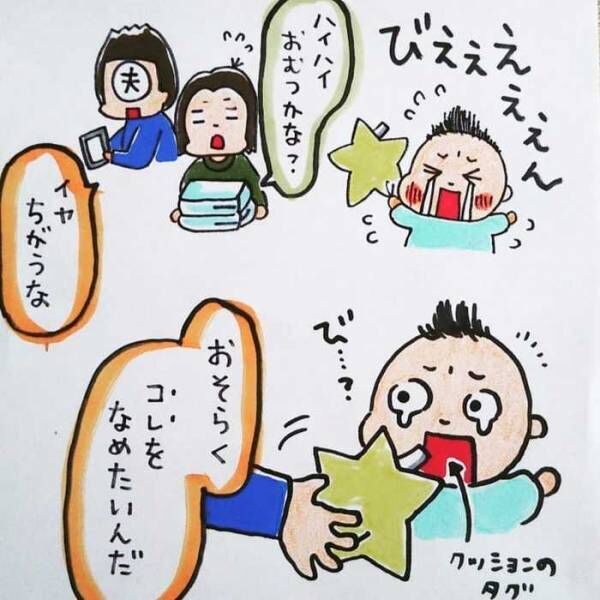 びえぇぇぇぇん
ハイハイ
おむつかな？
夫
イヤ
ちがうな
び…？
おそらく
コレを
なめたいんだ
クッションの
タグ